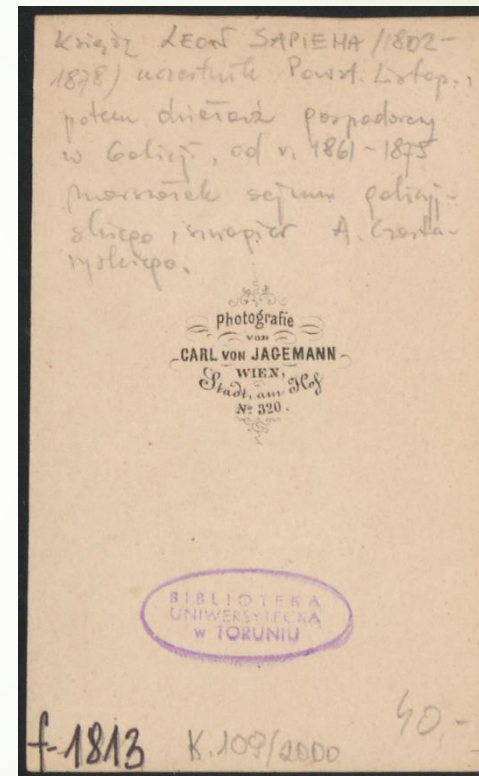 Książę LEON SAPIEHA /1802-
1878) uczestnik Powst. Listop.,
potem działacz gospodarczy
w Galicji, od r. 1861-1875
marszałek sejmu galicyj-
skiego, szwagier A. Czarto-
ryskiego.
photografie
von
CARL VON JAGEMANN
WIEN,
Stadt, am Hof
No 320.
BIBLIOTEKA
UNIWERSYTECKA
w TORUNIU
40,-
f-1813 K.109/2000